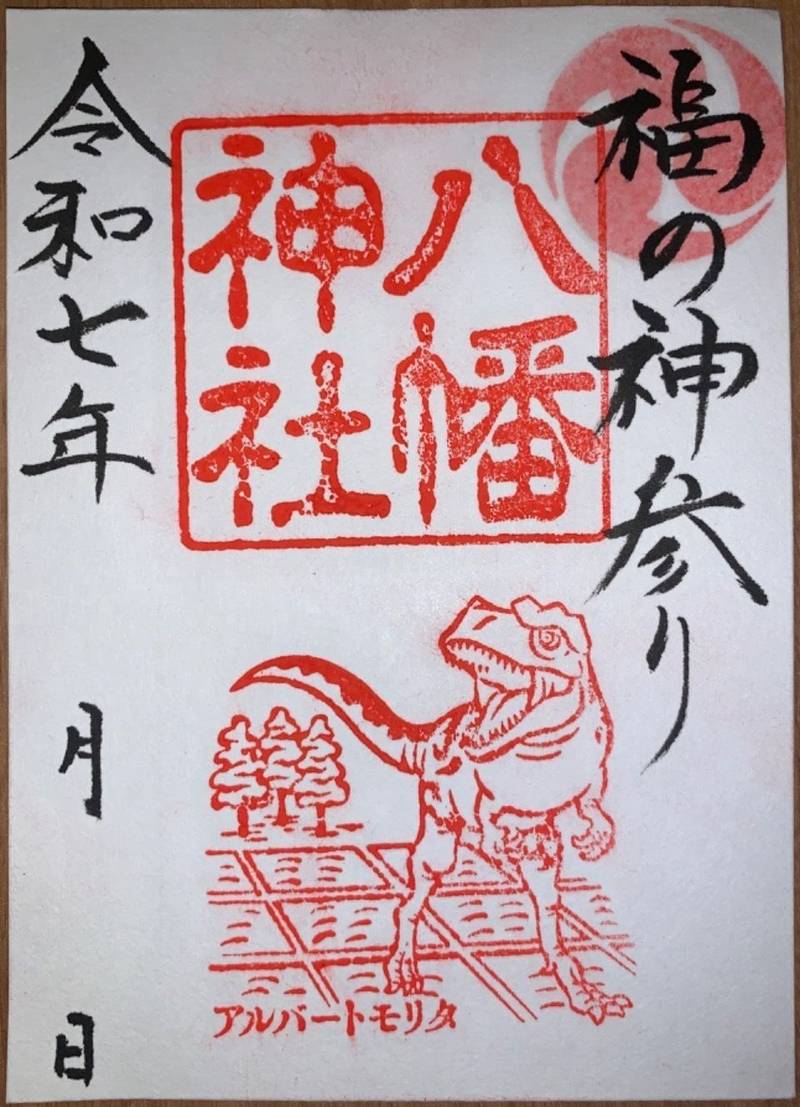 福の神参り
八幡
神社
令和七年 月 日
アルバートモリタ